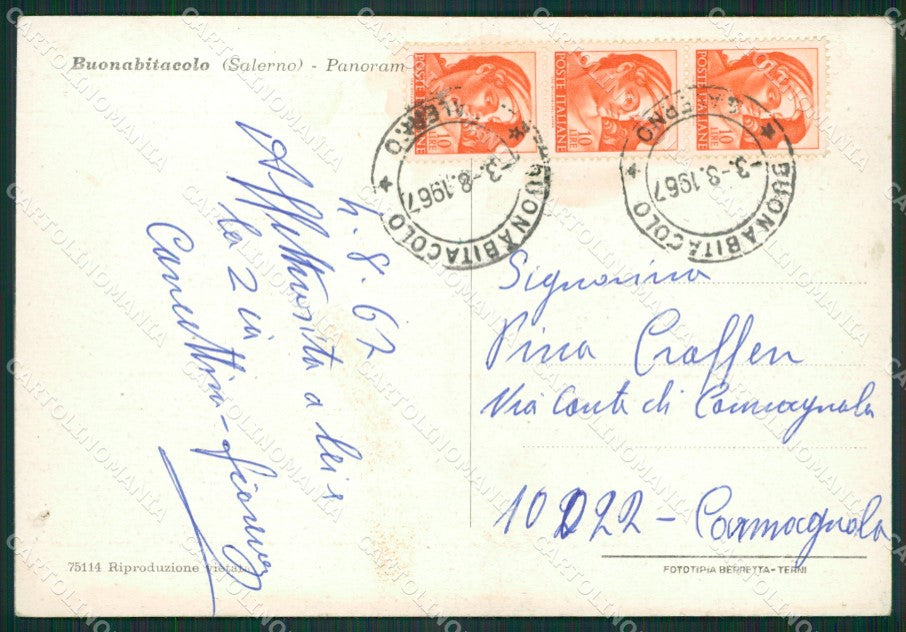 Buonabitacolo (Salerno) - Panoram
POSTE ITALIANE
10 LIRE
POSTE ITALIANE
10 LIRE
POSTE ITALIANE
10 LIRE
BUONABITACOLO
SALERNO
-3.-8.1967
BUONABITACOLO
SALERNO
-3.-8.1967
4.8.67
Affettuosità a lei e
la zia
Signorina
Pina
Via Conte di Carmagnola
10022 - Carmagnola
75114 Riproduzione vietata
FOTOTIPIA BERRETTA - TERNI
CARTOLINOMANIA